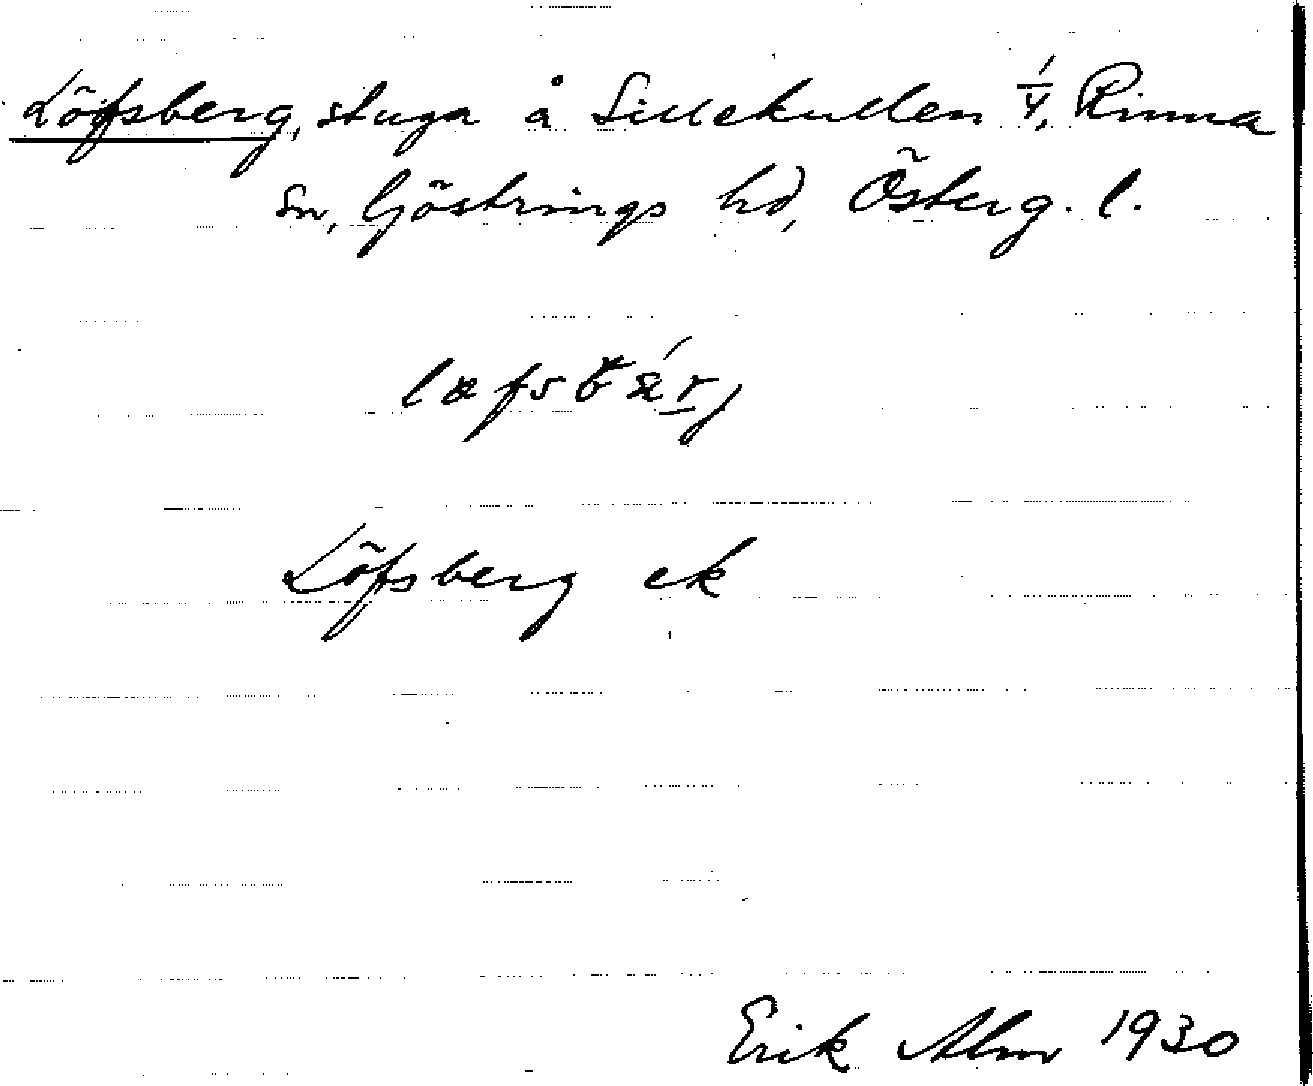 Löfsberg, stuga å Sillekullen 1/4, Rinna
sn, Göstrings hd, Österg. l.
Löfsberg ek
Erik Alm 1930